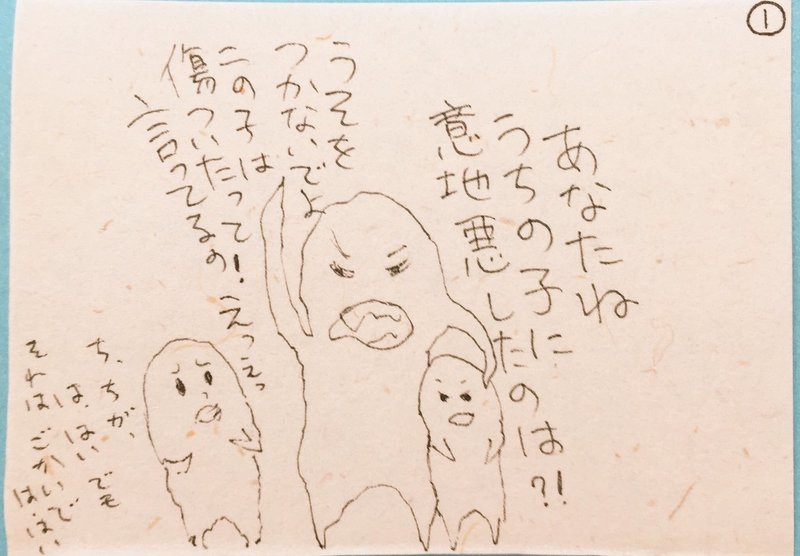 ①
あなたね
うちの子に
意地悪したのは?!
うそを
つかないでよ
この子は
傷ついたって!
言ってるの!
えっえっ
ち、ちが、
は、はい、でも
それは ごかいで
は、はい